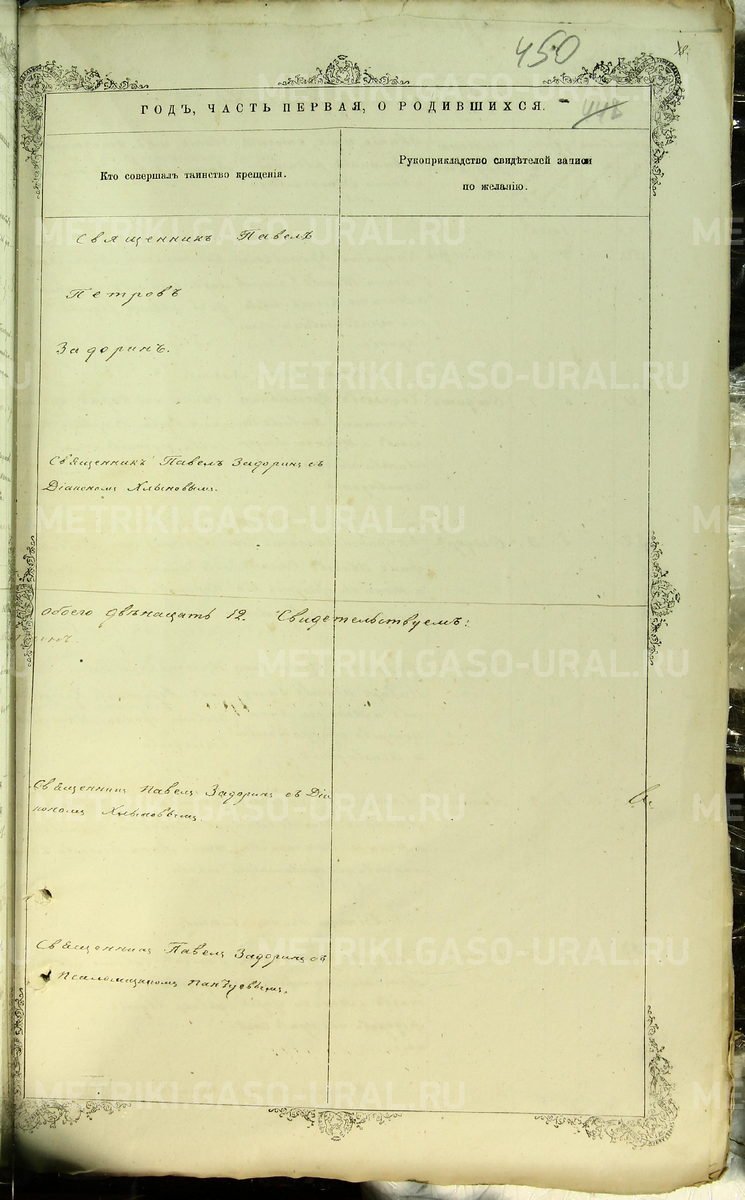 450
ГОДЪ, ЧАСТЬ ПЕРВАЯ, О РОДИВШИХСЯ.
Кто совершалъ таинство крещенія.
Рукоприкладство свидѣтелей записи
по желанію.
Священникъ Павелъ
Петровъ
Задоринъ.
Священникъ Павелъ Задоринъ съ
Діакономъ Хлыновымъ.
обоего двѣнацать 12. Свидетельствуемъ:
Священникъ Павелъ Задоринъ съ Діа
кономъ Хлыновымъ.
Священникъ Павелъ Задоринъ съ
Псаломщикомъ
METRIKI.GASO-URAL.RU